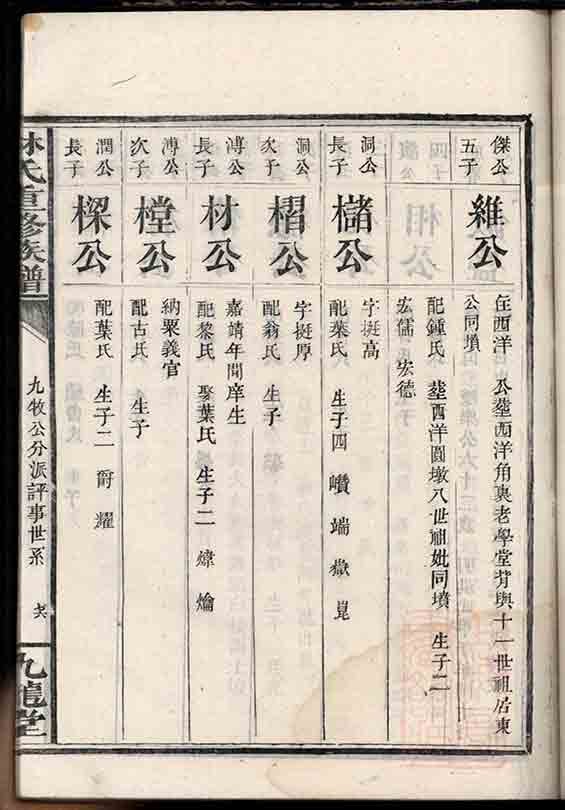 傑公
五子
維公
在西洋 公塟西洋角裏老學堂背與十一世祖居東
公同墳
配鍾氏 塟西洋圓墩八世祖妣同墳 生子二
宏儒 宏德
洞公
長子
櫧公
字挺高
配葉氏 生子四 巑 端 嶽 崑
洞公
次子
槢公
字挺厚
配翁氏 生子
溥公
長子
材公
嘉靖年間庠生
配黎氏 娶葉氏 生子二 煒 爚
溥公
次子
樘公
納粟義官
配古氏 生子
潤公
長子
樑公
配葉氏 生子二 爵 耀
林氏重修族譜
九牧公分派評事世系
九龍堂